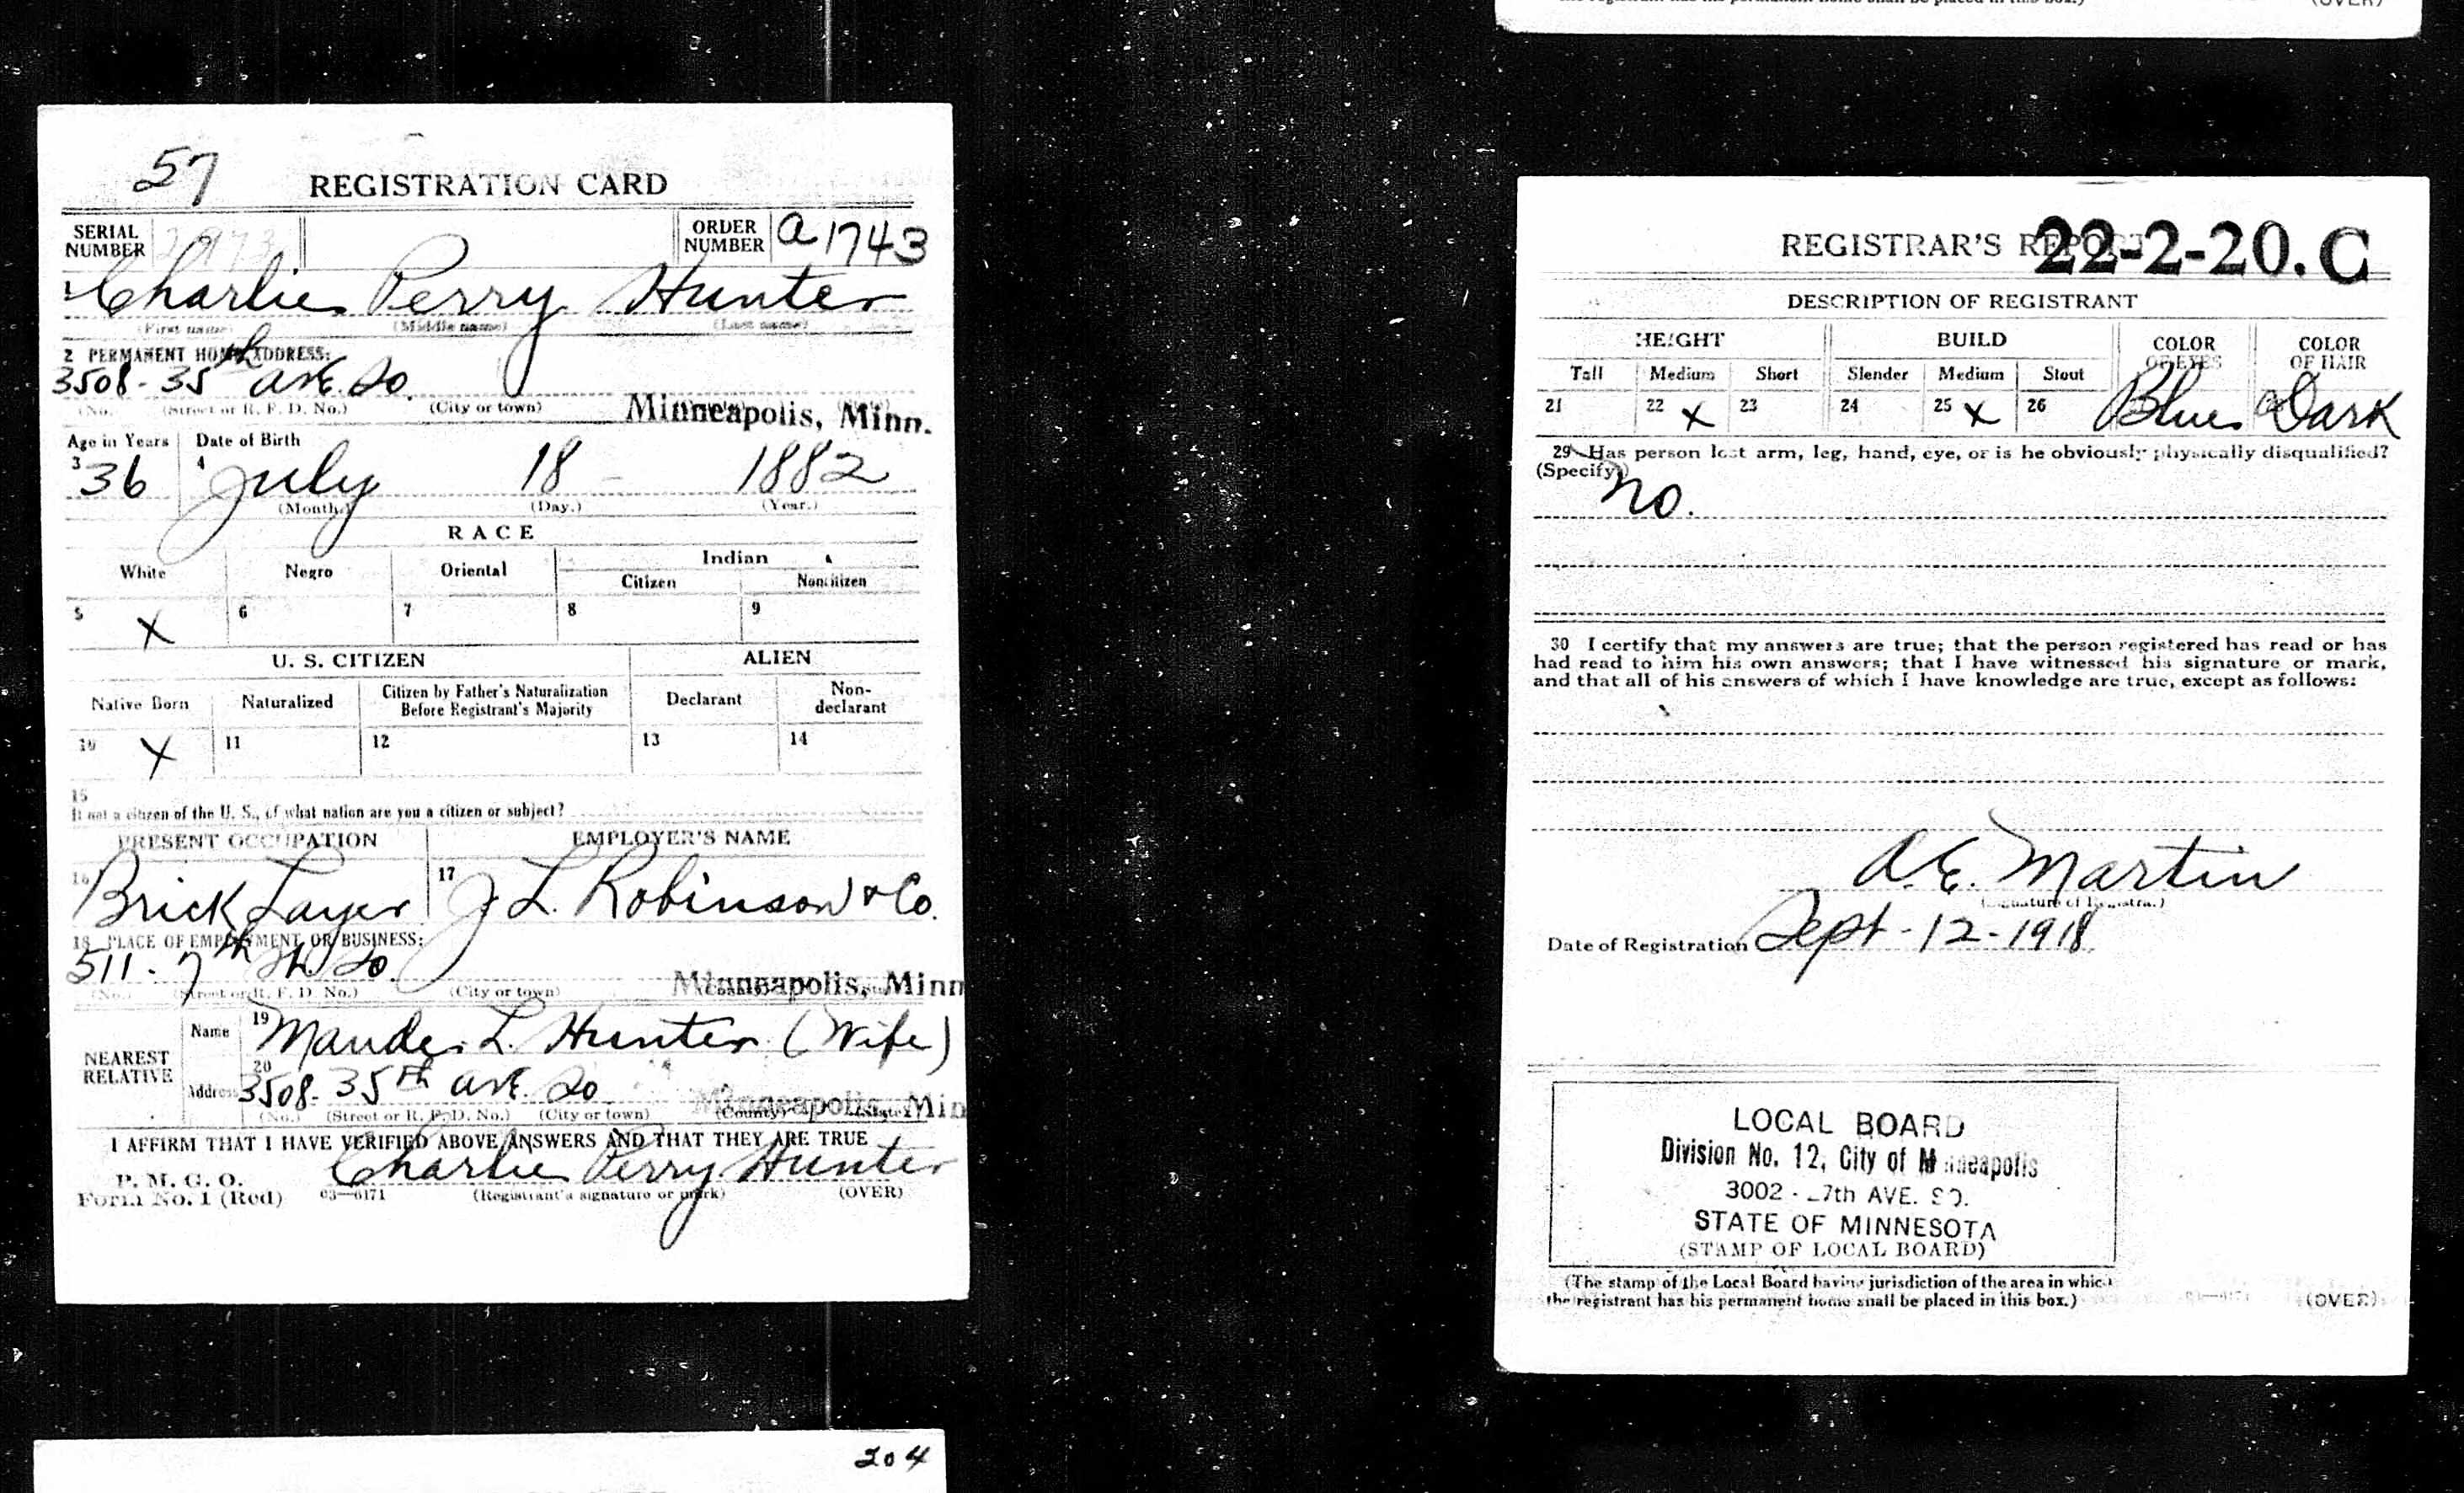 the registrant has his permanent home shall be placed in this box.) (OVER)
57
REGISTRATION CARD
SERIAL NUMBER ORDER NUMBER a 1743
1 Charlie Perry Hunter
(First name) (Middle name) (Last name)
2 PERMANENT HOME ADDRESS:
3508 - 35th ave. So. Minneapolis, Minn.
(No.) (Street or R. F. D. No.) (City or town)
Age in Years Date of Birth
3 36 4 July 18 - 1882
(Month.) (Day.) (Year.)
RACE
White Negro Oriental Indian
Citizen Noncitizen
5 X 6 7 8 9
U. S. CITIZEN ALIEN
Native Born Naturalized Citizen by Father's Naturalization Before Registrant's Majority Declarant Non-declarant
10 X 11 12 13 14
15
If not a citizen of the U. S., of what nation are you a citizen or subject?
PRESENT OCCUPATION EMPLOYER'S NAME
16 Brick Layer 17 J L. Robinson & Co.
18 PLACE OF EMPLOYMENT OR BUSINESS:
511 - 7th St. So. Minneapolis, Minn
(No.) (Street or R. F. D. No.) (City or town)
NEAREST RELATIVE
Name 19 Maude L. Hunter (Wife)
20
Address 3508 - 35th ave. So. Minneapolis, Min
(No.) (Street or R. F. D. No.) (City or town) (County) (State)
I AFFIRM THAT I HAVE VERIFIED ABOVE ANSWERS AND THAT THEY ARE TRUE
P. M. G. O.
Form No. 1 (Red) 03—6171 Charlie Perry Hunter
(Registrant's signature or mark) (OVER)
204
REGISTRAR'S REPORT 22-2-20. C
DESCRIPTION OF REGISTRANT
HEIGHT BUILD COLOR OF EYES COLOR OF HAIR
Tall Medium Short Slender Medium Stout
21 22 X 23 24 25 X 26 Blue Dark
29 Has person lost arm, leg, hand, eye, or is he obviously physically disqualified?
(Specify) no.
30 I certify that my answers are true; that the person registered has read or has
had read to him his own answers; that I have witnessed his signature or mark,
and that all of his answers of which I have knowledge are true, except as follows:
A. E. Martin
(Signature of Registrar)
Date of Registration Sept - 12 - 1918
LOCAL BOARD
Division No. 12, City of Minneapolis
3002 - 7th AVE. SO.
STATE OF MINNESOTA
(STAMP OF LOCAL BOARD)
(The stamp of the Local Board having jurisdiction of the area in which
the registrant has his permanent home shall be placed in this box.) (OVER)